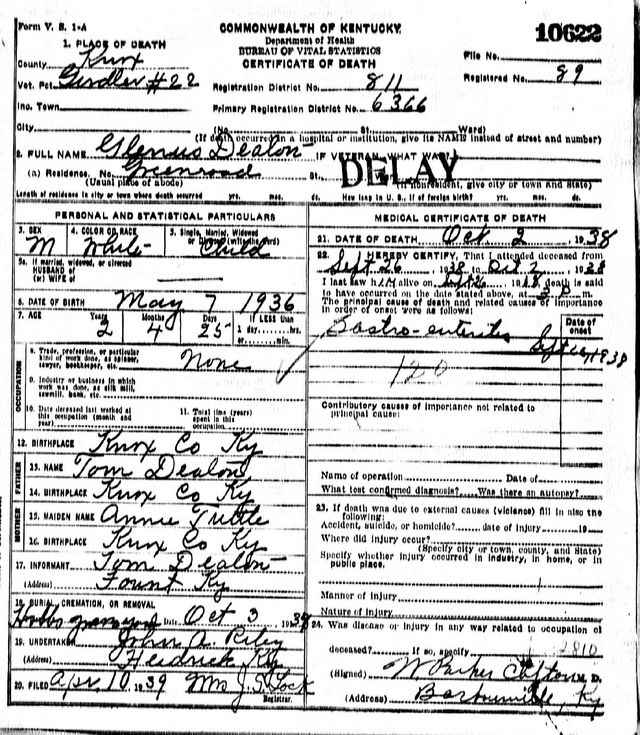 Form V. S. 1-A
COMMONWEALTH OF KENTUCKY
Department of Health
BUREAU OF VITAL STATISTICS
CERTIFICATE OF DEATH
10622
File No.
Registered No. 89
1. PLACE OF DEATH
County Knox
Vot. Pct. Girdler #22
Registration District No. 811
Inc. Town
Primary Registration District No. 6366
City (No. St. Ward)
(If death occurred in a hospital or institution, give its NAME instead of street and number)
2. FULL NAME Glenus Deaton IF VETERAN, WHAT WAR
(a) Residence. No. Greenroad St.
DELAY
(Usual place of abode) (If nonresident, give city or town and State)
Length of residence in city or town where death occurred yrs. mos. ds. How long in U. S., if of foreign birth? yrs. mos. ds.
PERSONAL AND STATISTICAL PARTICULARS
3. SEX M
4. COLOR OR RACE White
5. Single, Married, Widowed, or Divorced (write the word) Child
5a. If married, widowed, or divorced
HUSBAND of
(or) WIFE of
6. DATE OF BIRTH May 7 1936
7. AGE Years 2 Months 4 Days 25 If LESS than
1 day,....hrs.
or....min.
OCCUPATION
8. Trade, profession, or particular
kind of work done, as spinner,
sawyer, bookkeeper, etc. None
9. Industry or business in which
work was done, as silk mill,
sawmill, bank, etc.
10. Date deceased last worked at
this occupation (month and
year)
11. Total time (years)
spent in this
occupation
12. BIRTHPLACE Knox Co Ky
FATHER
13. NAME Tom Deaton
14. BIRTHPLACE Knox Co Ky
MOTHER
15. MAIDEN NAME Annie Tuttle
16. BIRTHPLACE Knox Co Ky
17. INFORMANT Tom Deaton
(Address) Fount Ky
18. BURIAL, CREMATION, OR REMOVAL
Hobbs graveyard Date Oct 3, 1938
19. UNDERTAKER John A. Riley
(Address) Heidrick Ky
20. FILED Apr 10, 1939 Mrs J. S. Lock
Registrar.
MEDICAL CERTIFICATE OF DEATH
21. DATE OF DEATH Oct 2, 1938
22. I HEREBY CERTIFY, That I attended deceased from
Sept 26, 1938 to Oct 2, 1938
I last saw him alive on Sept 26, 1938, death is said
to have occurred on the date stated above, at 3 P m.
The principal cause of death and related causes of importance
in order of onset were as follows:
Date of
onset
Gastro-enteritis
1938
120
Contributory causes of importance not related to
principal cause:
Name of operation Date of
What test confirmed diagnosis? Was there an autopsy?
23. If death was due to external causes (violence) fill in also the
following:
Accident, suicide, or homicide? date of injury 19
Where did injury occur?
(Specify city or town, county, and State)
Specify whether injury occurred in industry, in home, or in
public place.
Manner of injury
Nature of injury
24. Was disease or injury in any way related to occupation of
deceased? If so, specify 2810
(Signed) W Parker Clifton M. D.
(Address) Barbourville, Ky